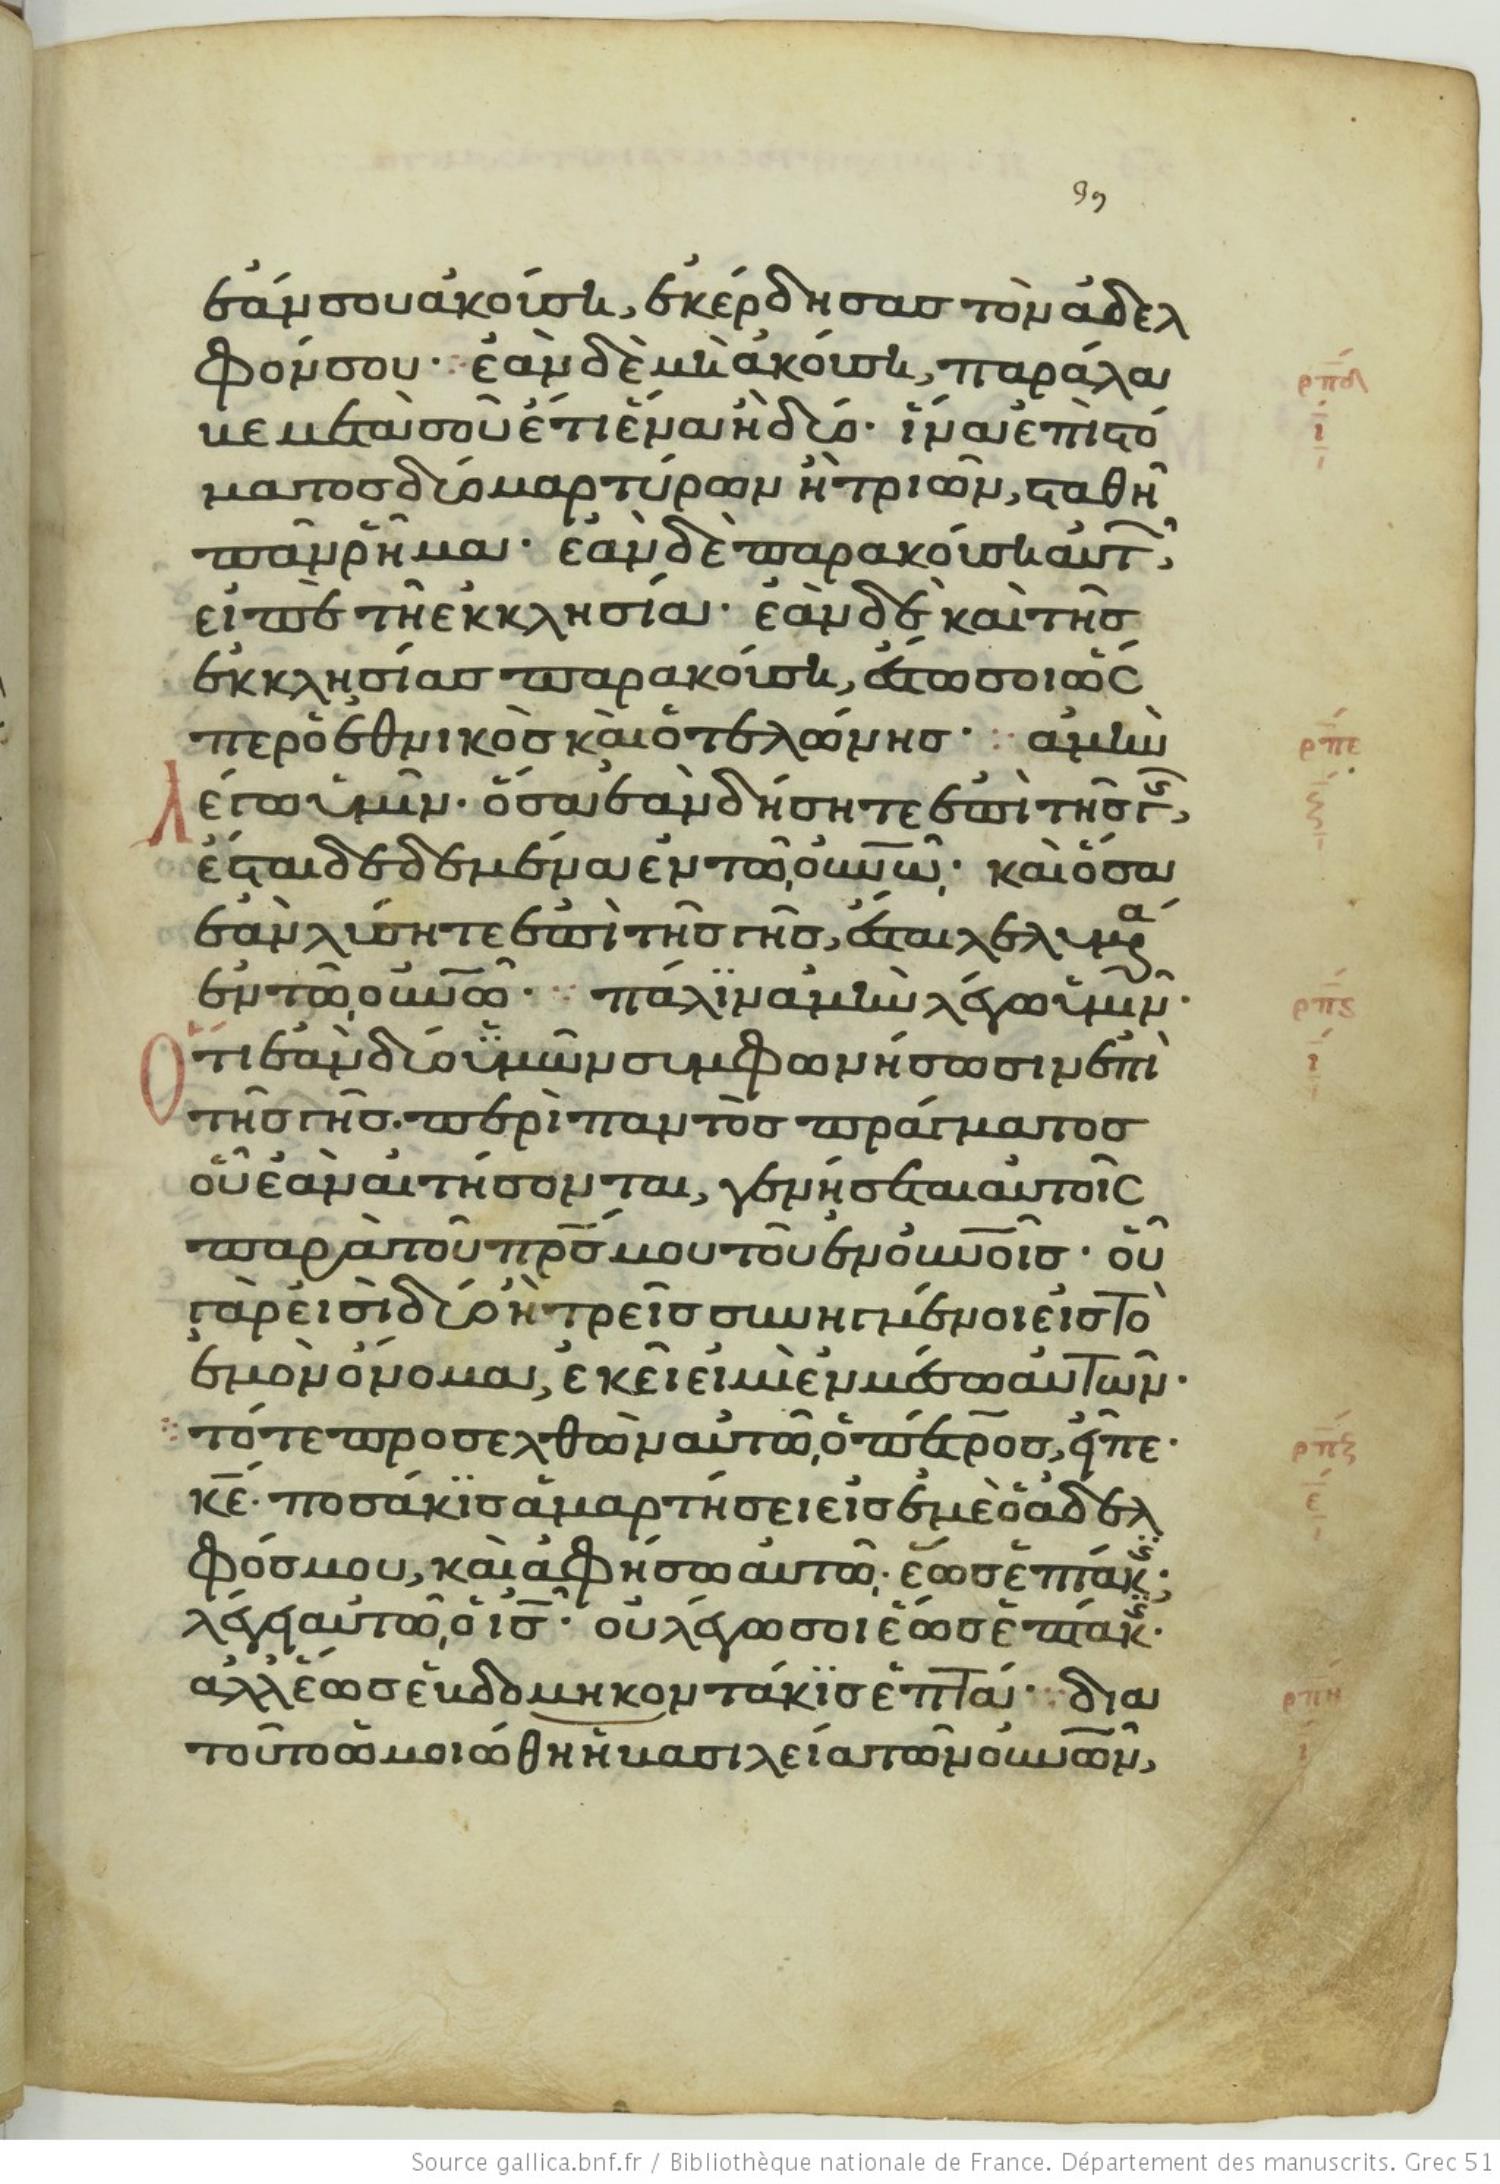 99
ἐάν σου ἀκούση, ἐκέρδησας τὸν ἀδελ
φόν σου· ἐὰν δὲ μὴ ἀκούση, παράλα
βε μετὰ σοῦ ἔτι ἕνα ἢ δύο· ἵνα ἐπὶ στό
ματος δύο μαρτύρων ἢ τριῶν, σταθῆ
πᾶν ῥῆμα· ἐὰν δὲ παρακούση αυτ͂,
εἰπὲ τῆ ἐκκλησία· ἐὰν δὲ καὶ τῆς
ἐκκλησίας παρακούση, ἔστω σοι ὥς
περ ὁ ἐθνικὸς καὶ ὁ τελώνης· ἀμὴν
λέγω ὑμῖν· ὅσα ἐὰν δήσητε ἐπὶ τῆς γῆς,
ἔσται δεδεμένα ἐν τῶ οὐνῶ· καὶ ὅσα
ἐὰν λύσητε ἐπὶ τῆς γῆς, ἔσται λελυμένα
ἐν τῶ οὐνῶ· πάλϊν ἀμὴν λέγω ὑμῖν·
ὅτι ἐὰν δύο ὑμῶν συμφωνήσωσιν ἐπὶ
τῆς γῆς. περὶ παντὸς πράγματος
οὗ ἐὰν αἰτήσονται, γενήσεται αὐτοῖς
παρὰ τοῦ πρς μου τοῦ ἐν οὐνοῖς· οὗ
γάρ εἰσὶ δύο ἢ τρεῖς συνηγμένοι εἰς τὸ
ἐμὸν ὄνομα, ἐκεῖ εἰμὶ ἐν μέσω αὐτῶν·
τότε προσελθὼν αὐτῶ ὁ πέτρος, εἶπε·
κε· ποσάκϊς ἁμαρτήσει εἰς ἐμὲ ὁ ἀδελ
φός μου, καὶ ἀφήσω αὐτῶ· ἕως ἑπτάκις;
λέγει αὐτῶ ὁ ις· οὐ λέγω σοι ἕως ἑπτάκις·
ἀλλ' ἕως ἑβδομηκοντάκϊς ἑπτά· δια
τοῦτο ὡμοιώθη ἡ βασιλεία τῶν οὐνῶν,
ρπδ
ι
ρπε
ξ
ρπς
ι
ρπζ
ε
ρπη
ι
Source gallica.bnf.fr / Bibliothèque nationale de France. Département des manuscrits. Grec 51